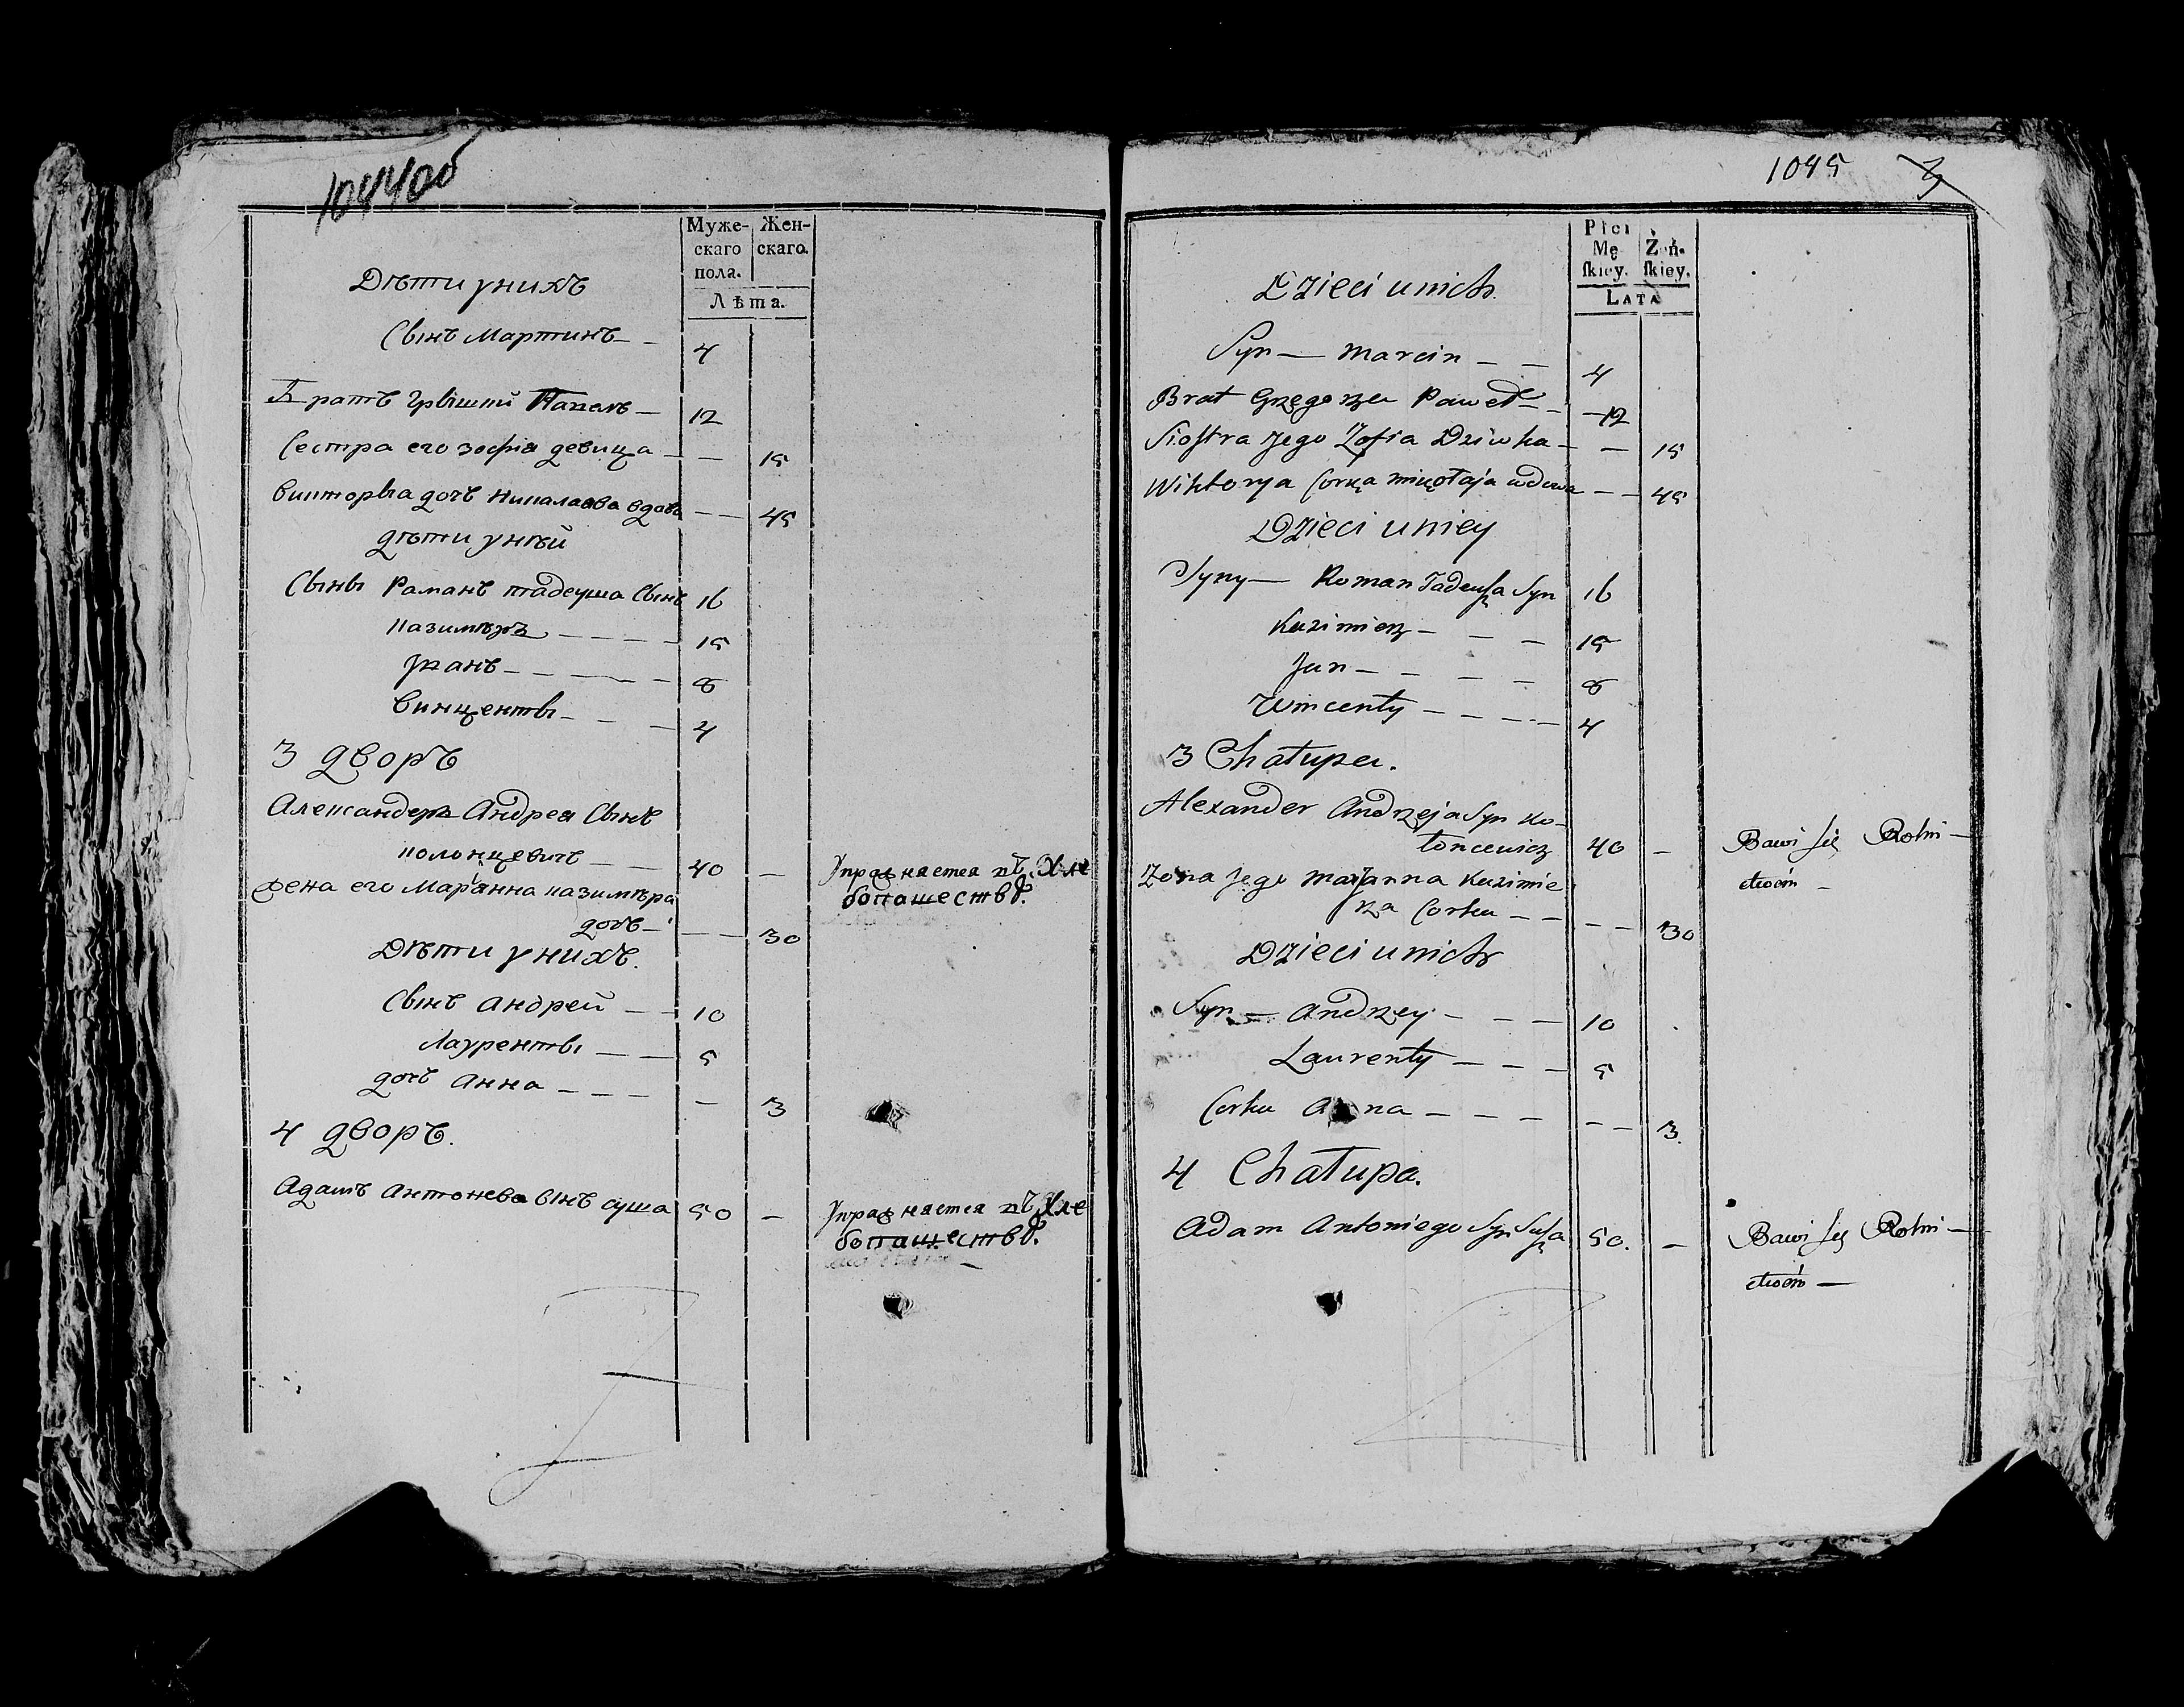 1044об
Муже- Жен-
скаго скаго.
пола.
Лѣта.
Дѣти у нихъ
Сынъ Мартинъ — — 4
Братъ Грышки Павелъ — 12
Сестра его зофия девица — — 15
Викторыа дочъ Николаева вдова — — 45
дѣти у ней
Сыны Раманъ тадеуша Сынъ 16
казимѣръ — — — — 15
Iванъ — — — — — 8
Винценты — — — — 4
3 дворъ
Александеръ Андрея Сынъ
колонцевичъ — — 40 — Упражняется въ Хле
бопашествѣ.
Жена его Марʼанна казимѣра
дочъ — — — 30
Дѣти у нихъ.
Сынъ андрей — — 10
Лауренты — — 5
дочъ анна — — — — 3
4 дворъ.
Адамъ антонева сынъ суша 50 — Упражняется въ Хле
бопашествѣ.
1045 3
Płci
Mę Żeń-
ſkiey. ſkiey.
LATA
Dzieci u nich
Syn — Marcin — — 4
Brat Grzegorza Paweł — — 12
Siostra Jego Zofia Dziwka — — 15
Wiktorya Corka mikołaja wdowa — — 45
Dzieci u niey
Syny — Roman Tadeusza Syn 16
Kazimierz — — — 15
Jan — — — — — 8
Wincenty — — — — 4
3 Chałupa.
Alexander Andrzeja Syn Ko-
łoncewicz 40 — Bawi się Rolni —
ctwem —
Zona Jego Maryanna Kazimie
rza Corka — — — — 30
Dzieci u nich
Syn — Andrzey — — — 10
Laurenty — — — 5
Corka Anna — — — — — 3.
4 Chałupa.
Adam Antoniego Syn Susza 50. — Bawi się Rolni —
ctwem —